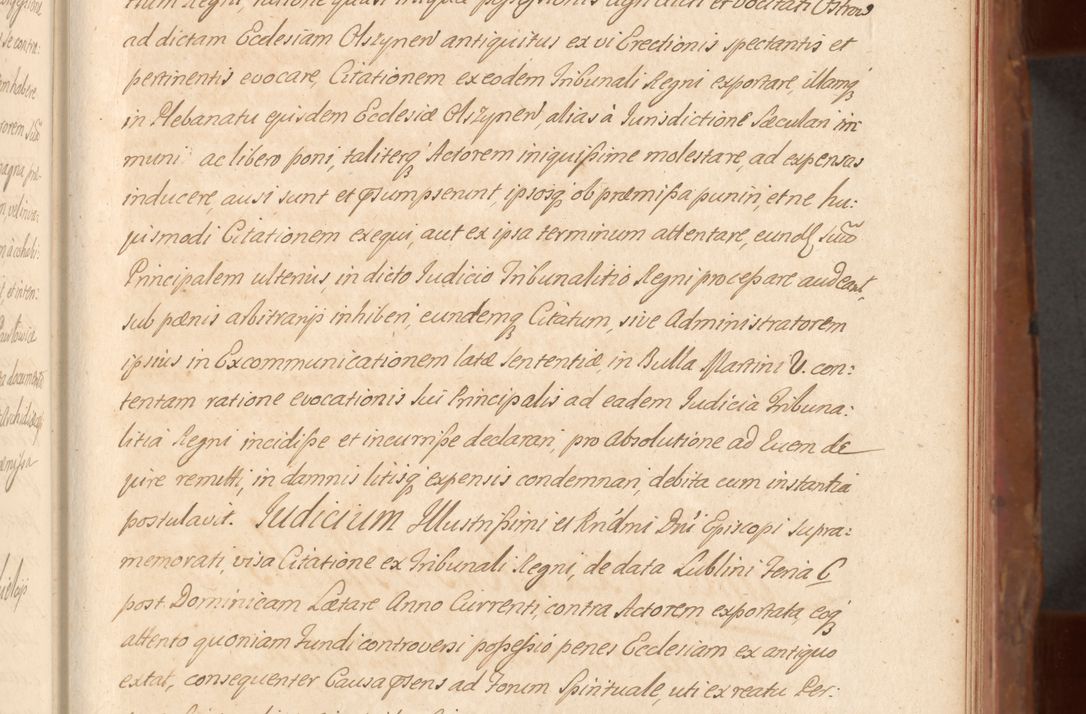 tium Regni, ratione quasi iniquæ possessionis agri dicti et vocitati Ostrow
ad dictam Ecclesiam Olszynen̄ antiquitus ex vi Erectionis spectantis et
pertinentis evocare, Citationem ex eodem Tribunali Regni exportare, illamq́
in Plebanatu ejusdem Ecclesiæ Olszynen̄, alias à Jurisdictione Sæculari im
muni ac libero poni, taliterq́ Actorem iniquissime molestare, ad expensas
inducere, ausi sunt et præsumpserunt, ipsosq́ ob præmissa puniri, et ne hu:
jusmodi Citationem exequi, aut ex ipsa terminum attentare, eund̄ suū
Principalem ulterius, in dicto Judicio Tribunalitio Regni processare audeant,
sub pœnis arbitrarijs inhiberi, eundemq́ Citatum, sive Administratorem
ipsius in Excommunicationem latæ Sententiæ, in Bulla Martini V. con:
tentam ratione evocationis sui Principalis ad eadem Judicia Tribuna:
litia Regni incidisse et incurrisse declarari, pro absolutione ad Euem de
jure remitti, in damnis litisq́ expensis condemnari, debita cum instantia
postulavit. Judicium Illustrissimi et Rńdmi Dńi Episcopi supra:
memorati, visa Citatione ex Tribunali Regni, de data Lublini Feria 6
post Dominicam Lætare Anno Currenti, contra Actorem exportata, eoq́
attento quoniam Fundi controversi possessio penes Ecclesiam ex antiquo
extat, consequenter Causa præsens ad Forum Spirituale, uti ex reatu Per: